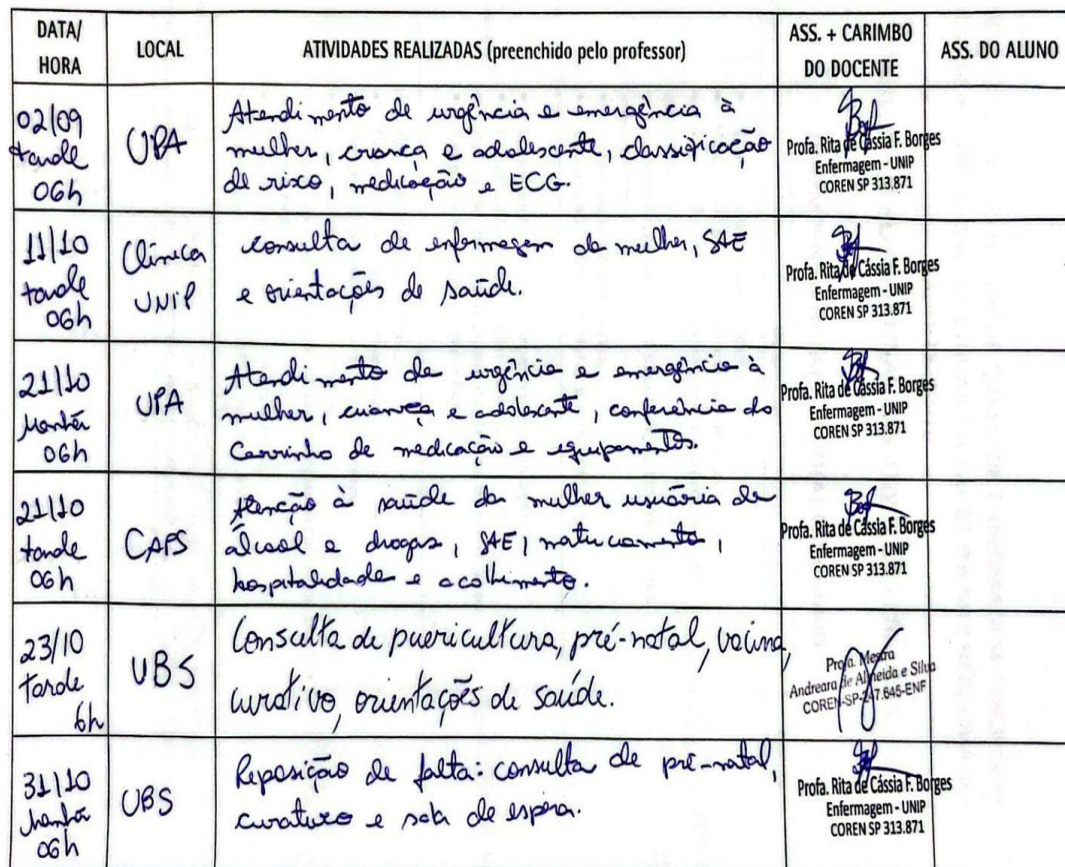 DATA/
HORA
LOCAL
ATIVIDADES REALIZADAS (preenchido pelo professor)
ASS. + CARIMBO
DO DOCENTE
ASS. DO ALUNO
02/09
tarde
06h
UPA
Atendimento de urgência e emergência à
mulher, criança e adolescente, classificação
de risco, medicação e ECG.
Profa. Rita de Cássia F. Borges
Enfermagem - UNIP
COREN SP 313.871
11/10
tarde
06h
Clínica
UNIP
consulta de enfermagem da mulher, SAE
e orientações de saúde.
Profa. Rita de Cássia F. Borges
Enfermagem - UNIP
COREN SP 313.871
21/10
Manhã
06h
UPA
Atendimento de urgência e emergência à
mulher, criança e adolescente, conferência do
Carrinho de medicação e equipamentos.
Profa. Rita de Cássia F. Borges
Enfermagem - UNIP
COREN SP 313.871
21/10
tarde
06h
CAPS
Atenção à saúde da mulher usuária de
álcool e drogas, SAE,
hospitalidade e acolhimento.
Profa. Rita de Cássia F. Borges
Enfermagem - UNIP
COREN SP 313.871
23/10
Tarde
6h
UBS
Consulta de puericultura, pré-natal, vacina,
curativo, orientações de saúde.
Profa. Mestra
Andreara de Almeida e Silva
COREN-SP-247.645-ENF
31/10
Manhã
06h
UBS
Reposição de falta: consulta de pré-natal,
curativo e sala de espera.
Profa. Rita de Cássia F. Borges
Enfermagem - UNIP
COREN SP 313.871